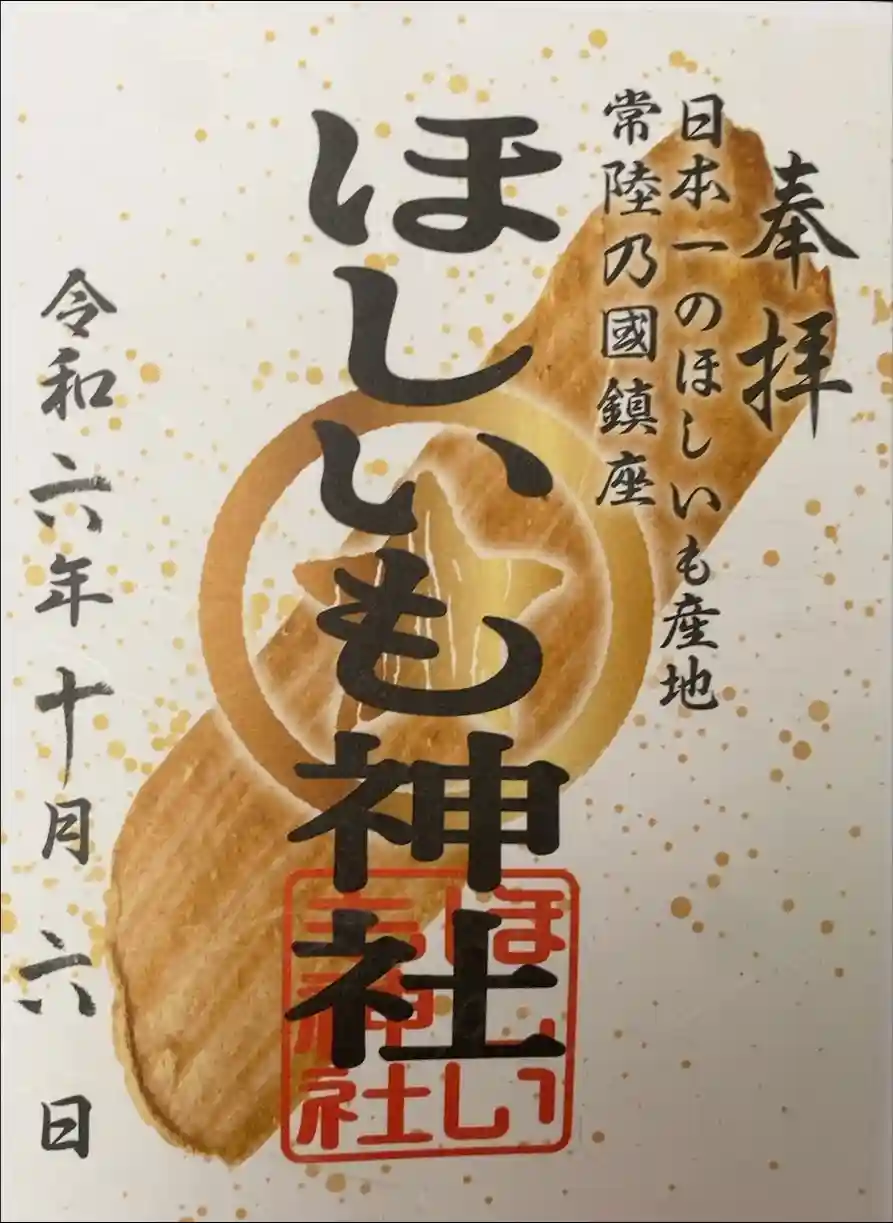 奉拝
日本一のほしいも産地
常陸乃國鎮座
ほしいも神社
ほしい
も神社
令和六年十月六日